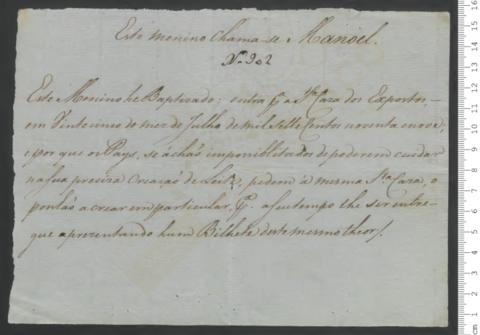 Este menino chama-se Manoel.
Nº 902
Este Menino he Baptizado; entra pª a Sta Caza dos Expostos,
em Vinte cinco do mez de Julho de mil Sette Centos noventa e nove,
e por que os Pays, se áchaõ impossiblitados de poderem cuidar
na sua preciza Creaçaõ de Leite, pedem à mesma Sta Caza, o
ponhaõ a crear em particular, pª a seu tempo lhe ser entre-
gue aprezentando hum Bilhete deste mesmo theor/.
cm 1 2 3 4 5 6 7 8 9 10 11 12 13 14 15 16